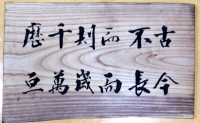 歷千刧而不古
亘萬歳而長今